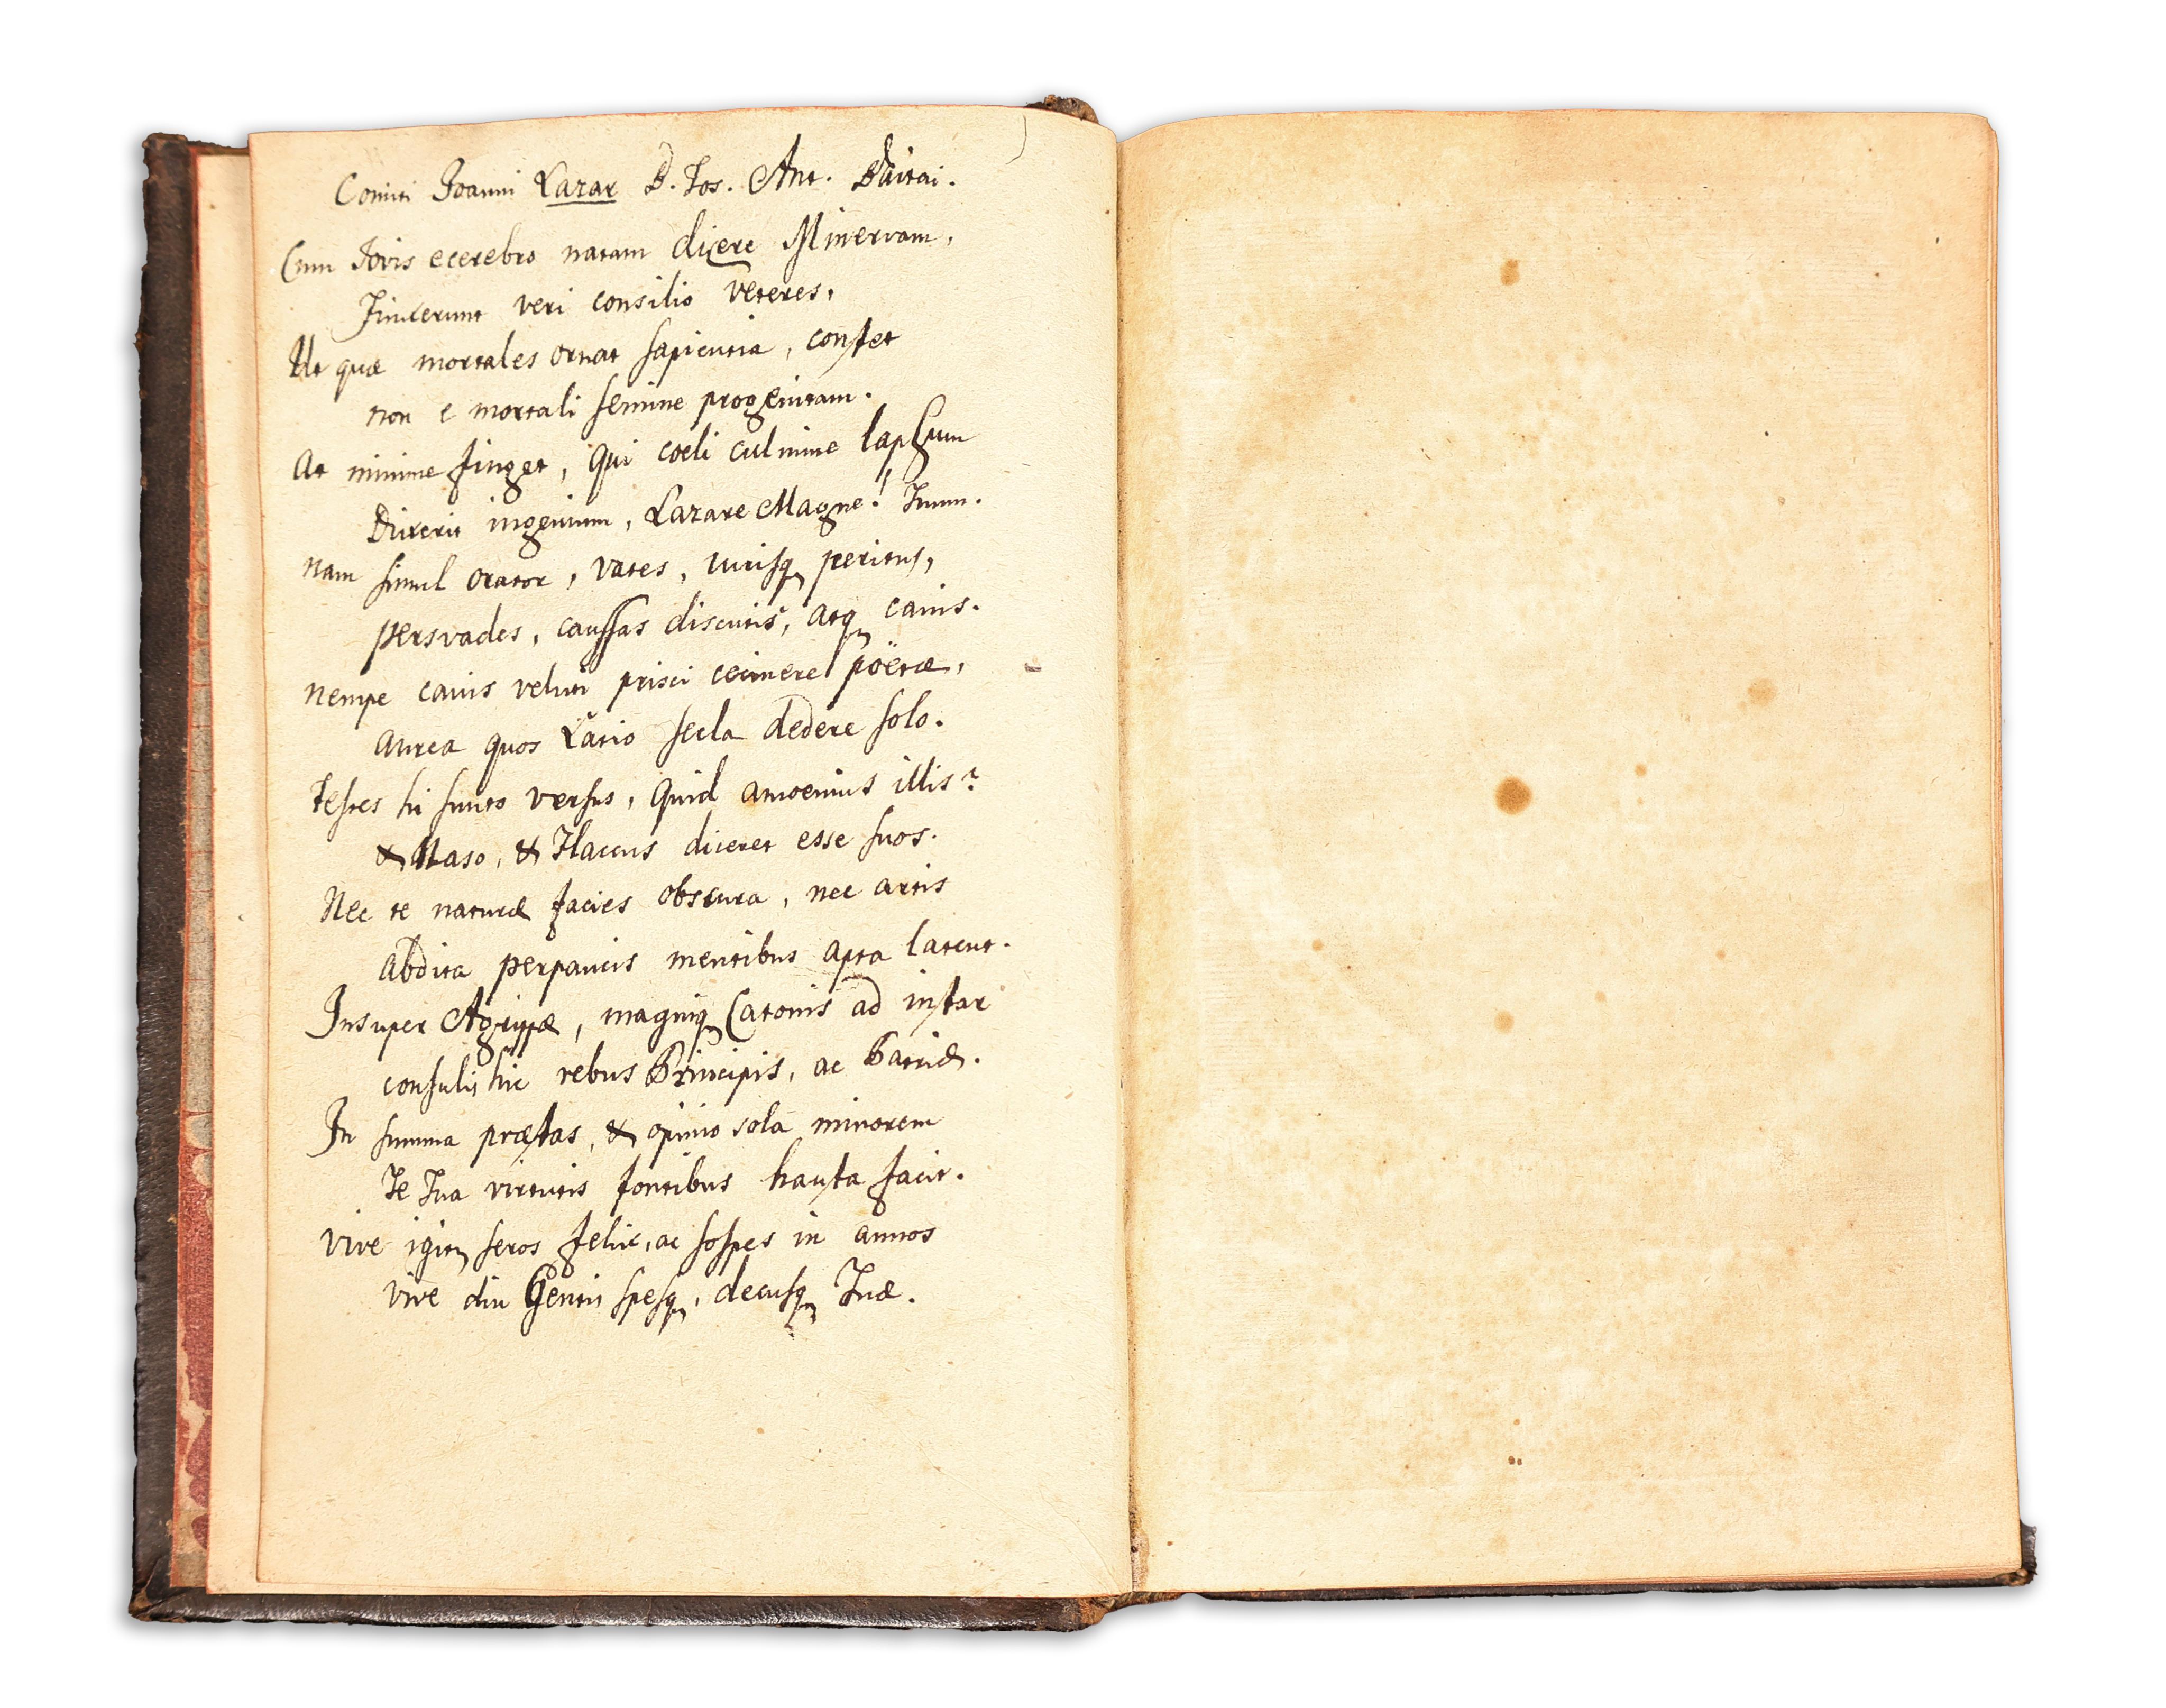 Comiti Joanni Lazar B. Jos. Ant. Daitai.
Cum Jovis ecerebro natam dicere Minervam,
Finxerunt veri consilio veteres,
Ut quæ mortales ornat sapientia, constet
non e mortali semine progenitam.
At minime finget, qui coeli culmine lapsum
Dixerit ingenium, Lazare Magne! Tuum.
nam simul orator, vates, iurisq peritus,
persvades, caussas discutis, atq canis.
nempe canis veluti prisci cecinere poëtæ,
aurea quos Latio secla dedere solo.
testes hi sunto versus, quid amoenius illis?
& Naso, & Flaccus diceret esse suos.
Nec te naturæ facies obscura, nec artis
abdita perpaucis mentibus apta latent.
Insuper Agrippæ, magniq Catonis ad instar
consulis hic rebus Principis, ac Patriæ.
In summa præstas, & opinio sola minorem
Te Tua virtutis fontibus hausta facit.
Vive igitr seros felix, ac sospes in annos
vive diu Gentis spesq, decusq Tuæ.